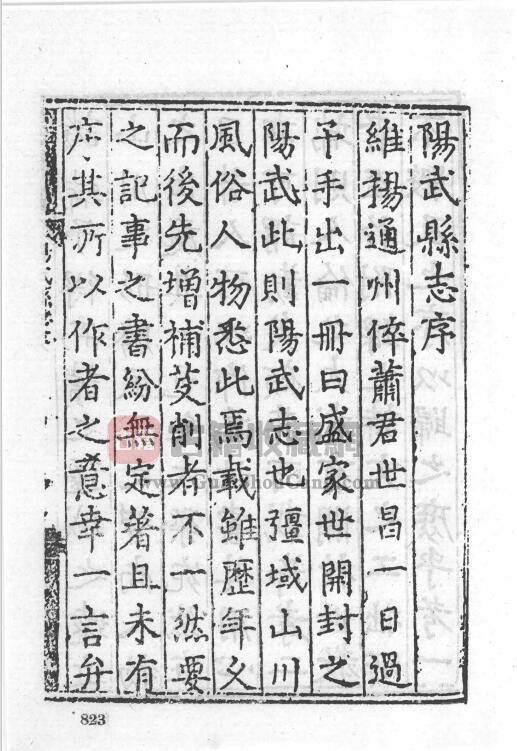 陽武縣志序
維揚通州倅蕭君世昌一日過
予手出一冊曰盛家世開封之
陽武此則陽武志也彊域山川
風俗人物悉此焉載雖歷年久
而後先增補芟削者不一然要
之記事之書紛無定著且未有
序其所以作者之意幸一言弁
823